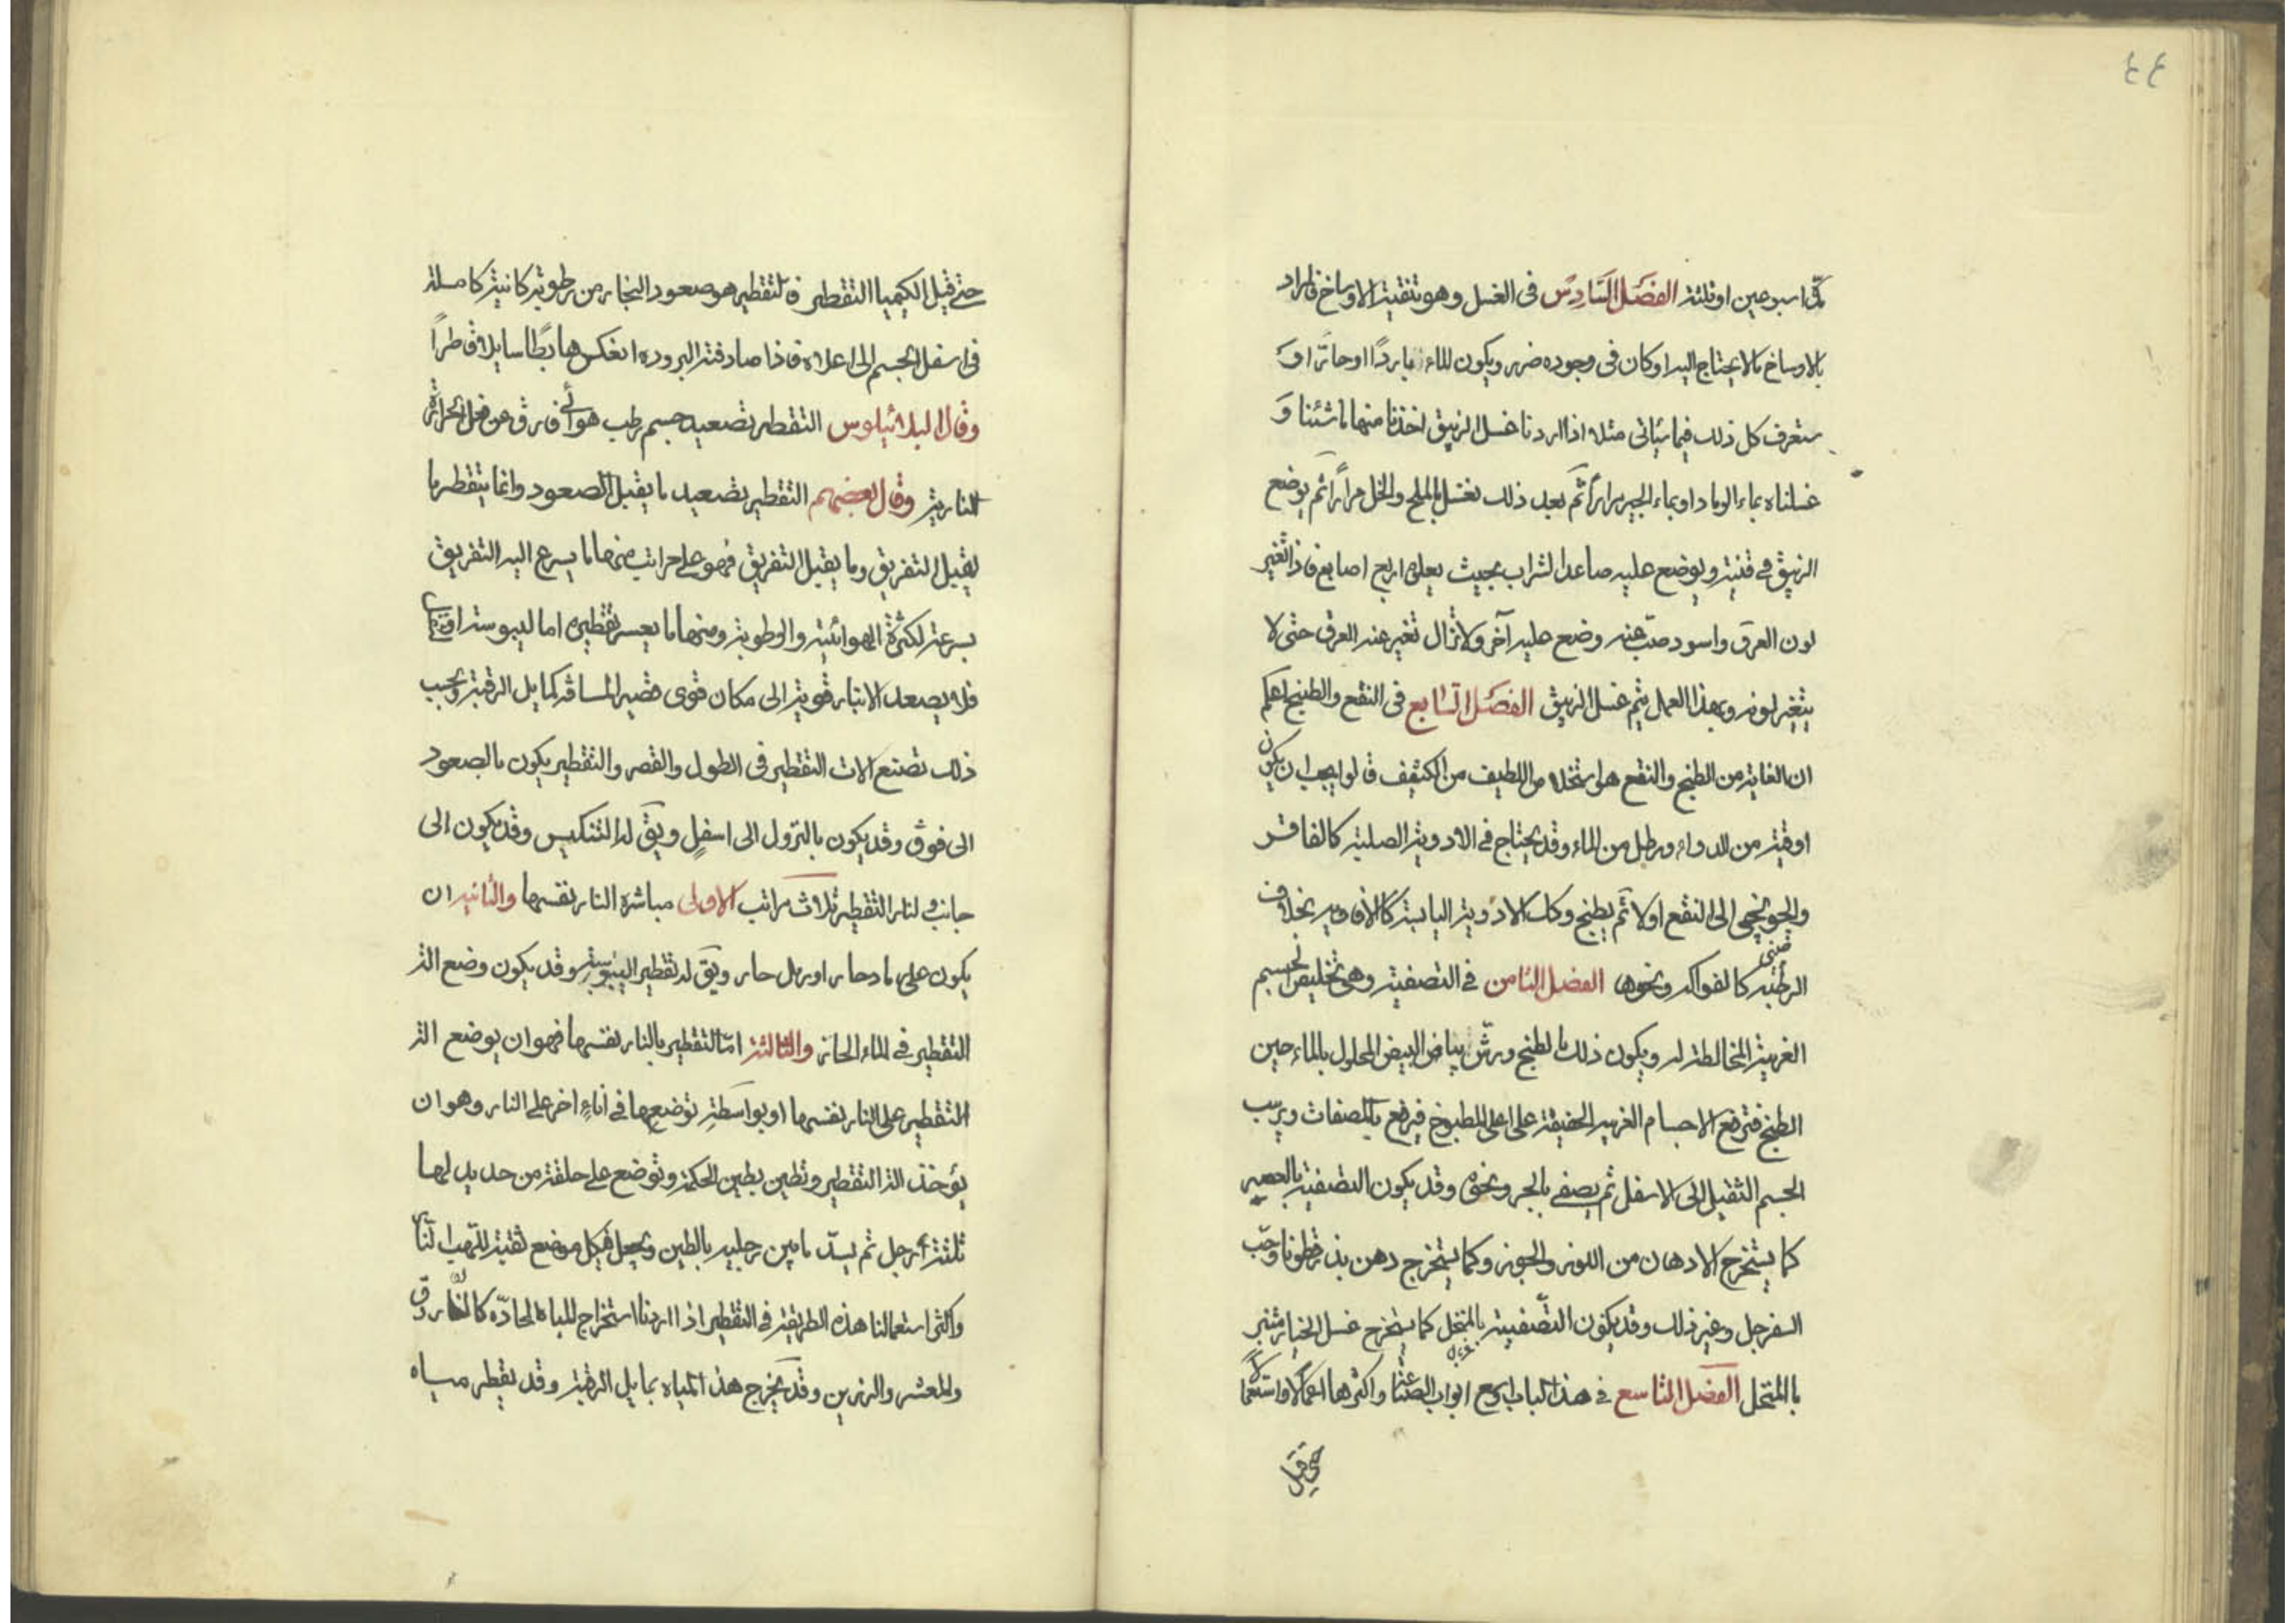 ٤٤
مدّة اسبوعين او ثلثة الفصل السّادس فى الغسل وهو تنقية الاوساخ فالمراد
بالاوساخ ما لا يحتاج اليه او كان فى وجوده ضرر ويكون بالماء باردًا او حارّا او
ستعرف كل ذلك فيما سيأتى مثلا اذا اردنا غسل الزيبق اخذنا منها ما شئنا وَ
غسلناه بماء الرماد او بماء الجير مرارًا ثم بعد ذلك نغسله بالملح والخل مرارًا ثم يوضع
الزيبق فى قنينة ويوضع عليه صاعد الشراب بحيث يعلوه اربع اصابع فاذا تغير
لون العرق واسود صبّ عنه وضع عليه آخر ولا تزال تغير عنه العرق حتى لا
يتغير لونه وبهذا العمل يتم غسل الزيبق الفصل السّابع فى النقع والطبخ اعلم
ان الغاية من الطبخ والنقع هو استخلاص اللطيف من الكثيف قالوا يجب ان يكون
اوقية من الدواء ورطل من الماء وقد يحتاج فى الادوية الصلبة كالفاقر
والجوبچينى الى النقع اولا ثم يطبخ وكل الادوية اليابسة كالافاويه بخلاف
الرطبة كالفواكه ونحوها الفصل الثامن فى التصفية وهى تخليص الجسم
الغريبة المخالطة له ويكون ذلك بالطبخ ورشّ بياض البيض المحلول بالماء حين
الطبخ فترفع الاجسام الغريبة الخفيفة على اعلى المطبوخ فيرفع بالمصفات ويرسب
الجسم الثقيل الى الاسفل ثم يصفى بالجر ونحوه وقد يكون التصفية بالعصير
كما يستخرج الادهان من اللوز والجوز وكما يستخرج دهن بذر قطونا وحبّ
السفرجل وغير ذلك وقد يكون التّصفية بالمنخل كما يستخرج عسل الخيارشنبر
باالمنخل الفصل التاسع فى هذا الباب اربع ابواب الصناعة واكثرها اعمالا واستعمالا
حتى قيل
حتى قيل الكيميا التقطير فالتقطير هو صعود البخار من رطوبة كانية كاملة
فى اسفل الجسم الى اعلاه فاذا صادفته البروده انعكس هابطًا سايلا قاطرًا
وقال البلاثيلوس التقطير تصعيد جسم رطب هوائى فارق عن فعل الحرارة
النارية وقال بعضهم التقطير تصعيد ما يقبل الصعود وانما يتقطر ما
يقبل التفريق وما يقبل التفريق فهو على مراتب منها ما يسرع اليه التفريق
بسرعة لكثرة الهوائية والرطوبة ومنها ما يعسر تقطيره اما ليبوسته او
فلا يصعد الا بنار قوية الى مكان قوى قصير المسافه كمايل الرقبة وبحسب
ذلك تصنع الات التقطير فى الطول والقصر والتقطير يكون بالصعود
الى فوق وقد يكون بالنزول الى اسفل ويق له التنكيس وقد يكون الى
جانب ولنار التقطير ثلاث مراتب الاولى مباشرة النار نفسها والثانيه ان
يكون على رماد حار او رمل حار ويق له تقطير اليبوسة وقد يكون وضع الة
التقطير فى الماء الحار والثالثة امّا التقطير بالنار نفسها فهو ان يوضع الة
التقطير على النار نفسها او بواسطة توضعها فى اناءٍ اخر على النار وهو ان
يؤخذ الة التقطير وتطين بطين الحكمة وتوضع على حلقة من حديد لها
ثلثة أرجل ثم يسدّ ما بين رجليه بالطين ويجعل فى كل موضع ثقبة للهب النار
واكثر استعمالنا هذه الطريقة فى التقطير اذا اردنا استخراج المياه الحادّه كالفاروق
والمعشر والرزين وقد يخرج هذه المياه بمايل الرقبة وقد يقطر مياه